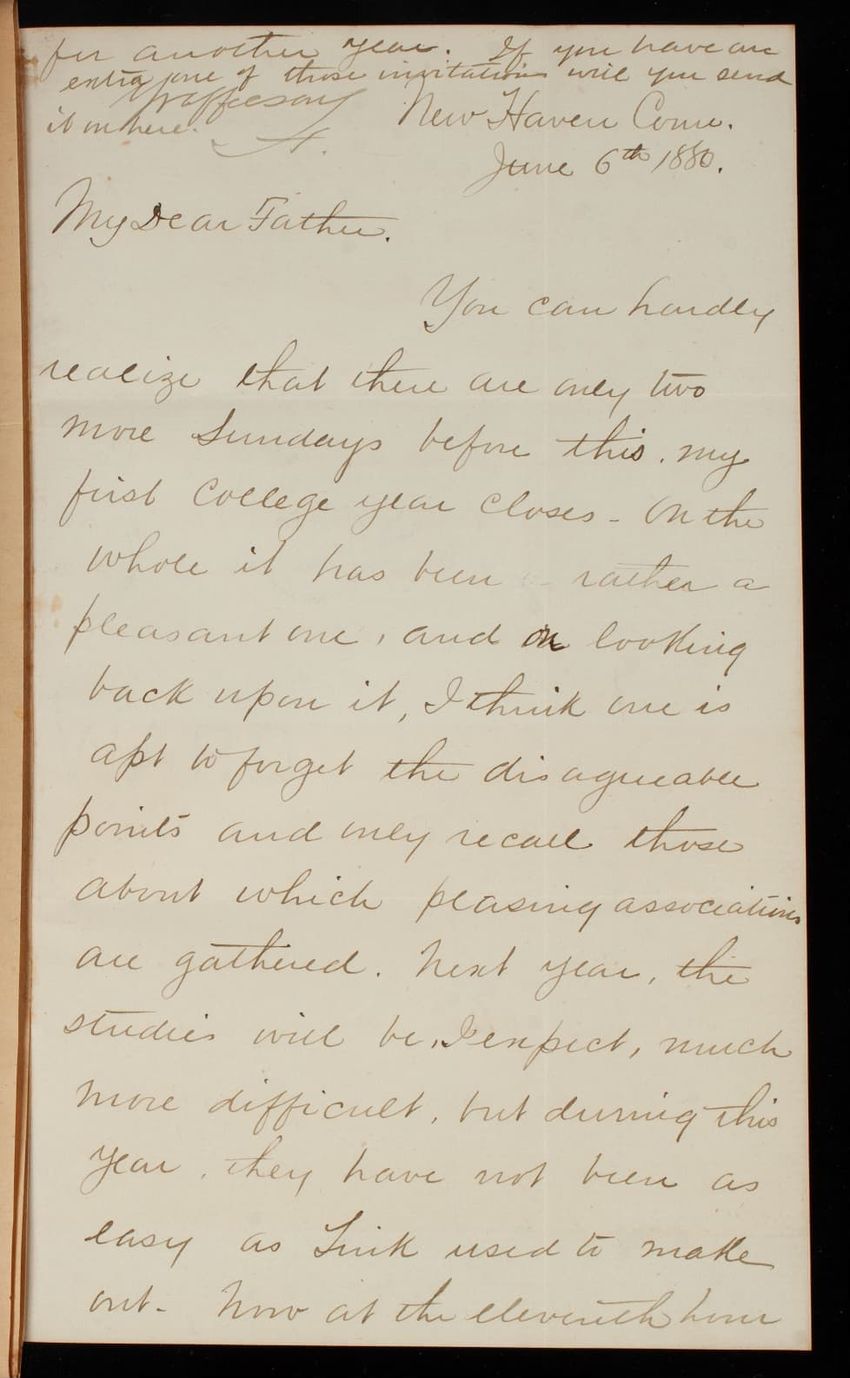 for another year. If you have an
extra one of those invitations will you send
it on here.
New Haven Conn.
June 6th 1880.
My Dear Father.
You can hardly
realize that there are only two
more Sundays before this, my
first College year closes - On the
whole it has been rather a
pleasant one, and on looking
back upon it, I think one is
apt to forget the disagreeable
points and only recall those
about which pleasing associations
are gathered. Next year, the
studies will be, I expect, much
more difficult, but during this
year, they have not been as
easy as Link used to make
out - Now at the eleventh hour